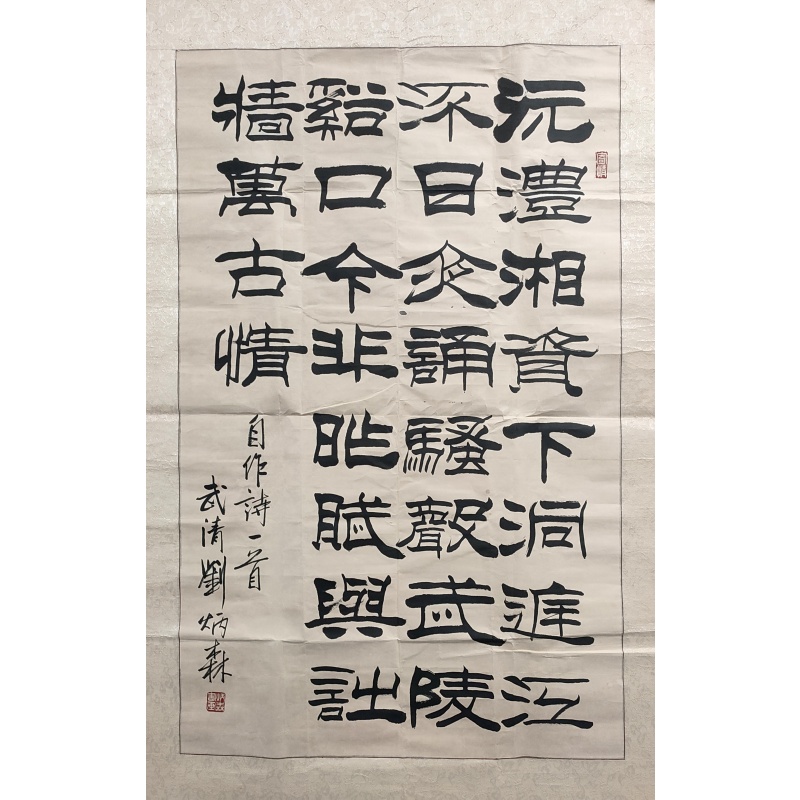 沅澧湘資下洞庭江
流日夜誦騷聲武陵
谿口今非昨賦與詩
牆萬古情
自作詩一首
武清劉炳森